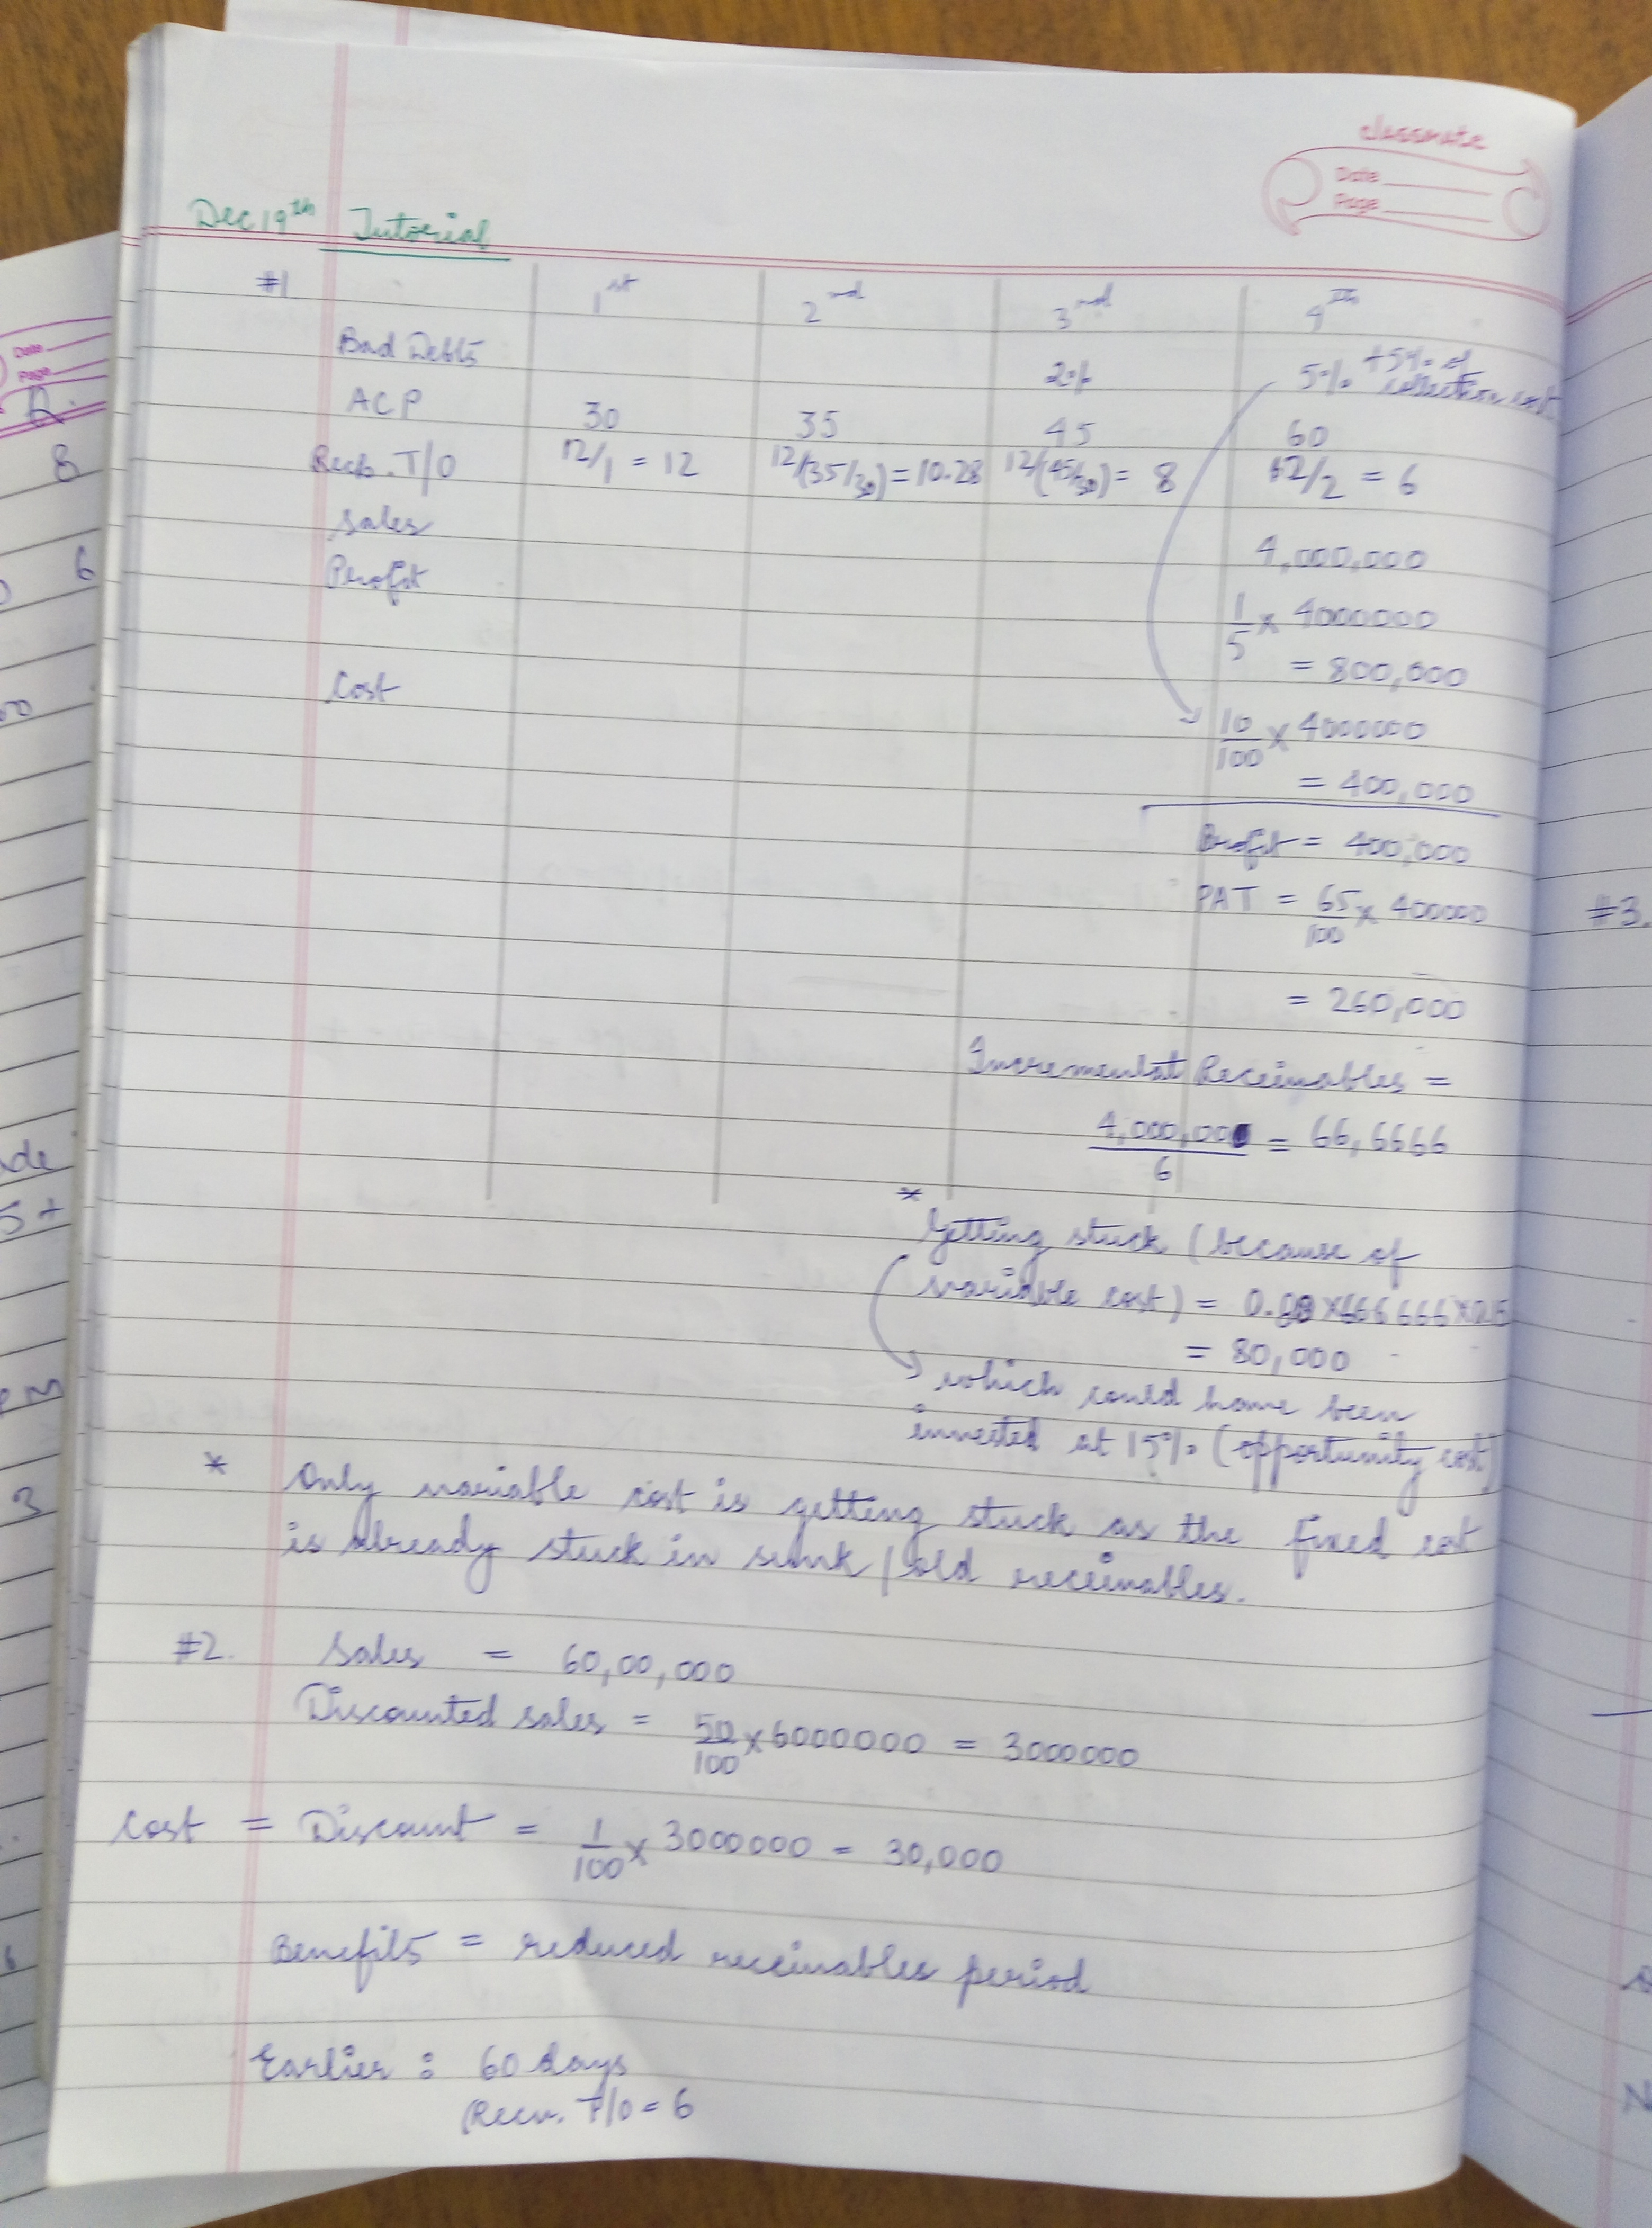 classmate
Date
Page
Dec 19th Tutorial
#1 1st 2nd 3rd 4th
Bad Debts 2% 5% +5% of collection cost
ACP 30 35 45 60
Recb. T/O 12/1 = 12 12/(35/30) = 10.28 12/(45/30) = 8 12/2 = 6
Sales 4,000,000
Profit 1/5 × 4000000
= 800,000
Cost 10/100 × 4000000
= 400,000
Profit = 400,000
PAT = 65/100 × 400000
= 260,000
Incremental Receivables =
4,000,000/6 = 66,6666
*
Getting stuck (because of
variable cost) = 0.80×666666×0.15
= 80,000
which could have been
invested at 15% (opportunity cost)
* Only variable cost is getting stuck as the fixed cost
is already stuck in sunk/old receivables.
#2. Sales = 60,00,000
Discounted sales = 50/100 × 6000000 = 3000000
Cost = Discount = 1/100 × 3000000 = 30,000
Benefits = reduced receivables period
Earlier : 60 days
(Recv. T/O = 6
Date
Page
8
6
3
#3.